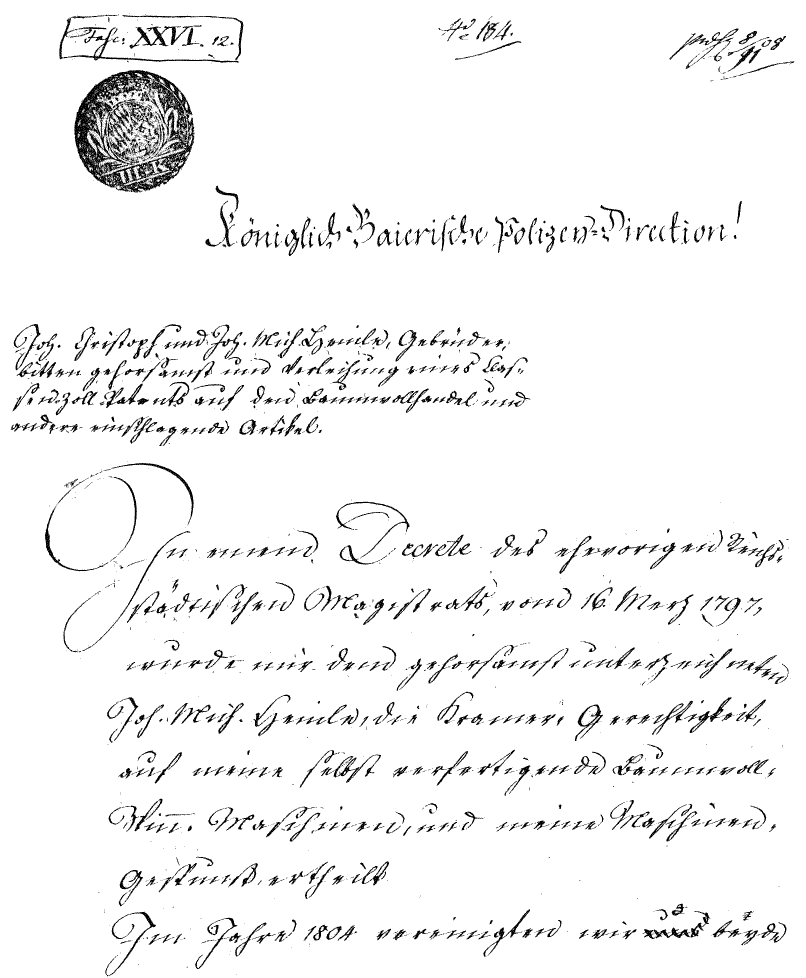 Fasc. XXVI. 12.
No 184.
III K
Königlich Baierische Polizey-Direction!
Joh. Christoph und Joh. Mich Heinle, Gebrüder,
bitten gehorsamst um Verleihung eines Clas-
sen Zoll Patents auf den Baumwollhandel und
andere einschlagende Artikel.
In einem Decrete des ehevorigen Reichs-
städtischen Magistrats, vom 16. Merz 1797,
wurde mir dem gehorsamst unterzeichneten
Joh. Mich. Heinle, die Kramer, Gerechtigkeit,
auf meine selbst verfertigende Baumwoll-
Spinn. Maschinen, und meine Maschinen-
Gespunst ertheilt
Im Jahre 1804 vereinigten wir beyde